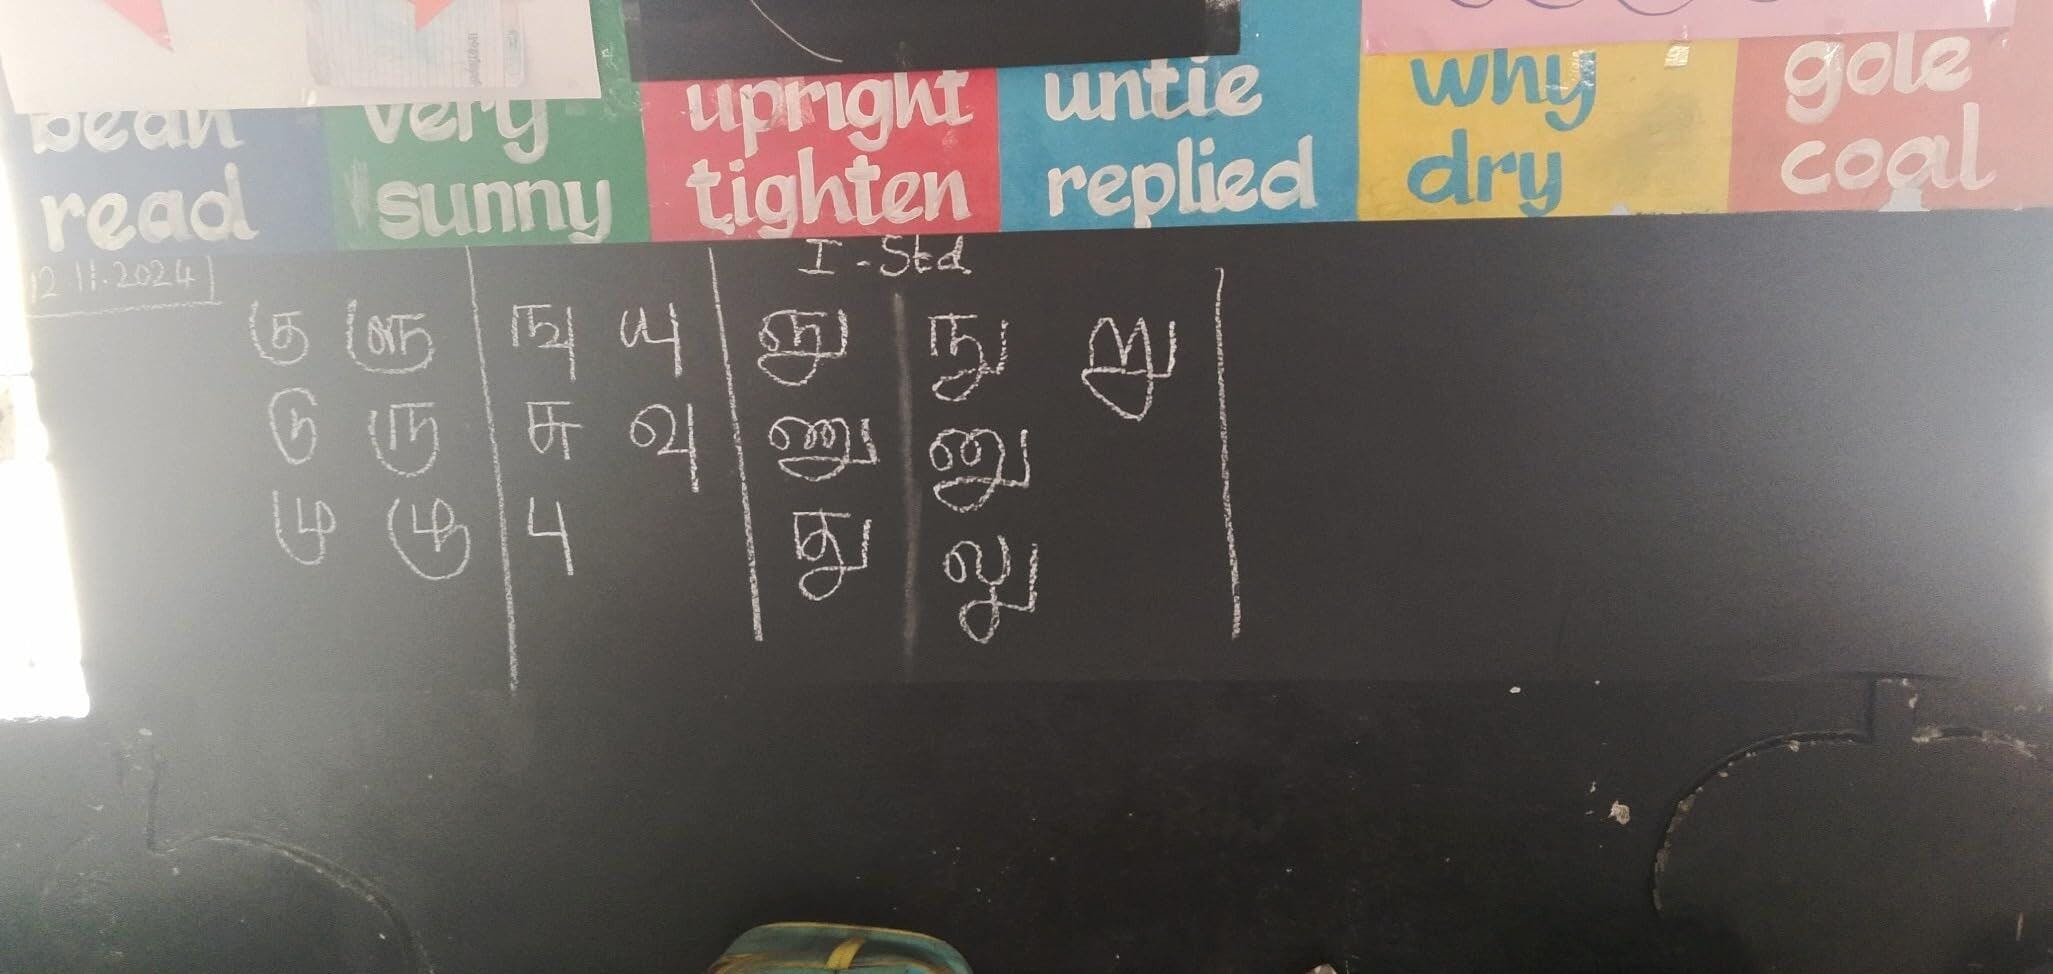 bean very upright untie why gole
read sunny tighten replied dry coal
I - Std
12.11.2024
கு ளு ஙு யு ஞு நு று
டு ரு சு வு ணு னு
மு ழு பு து லு